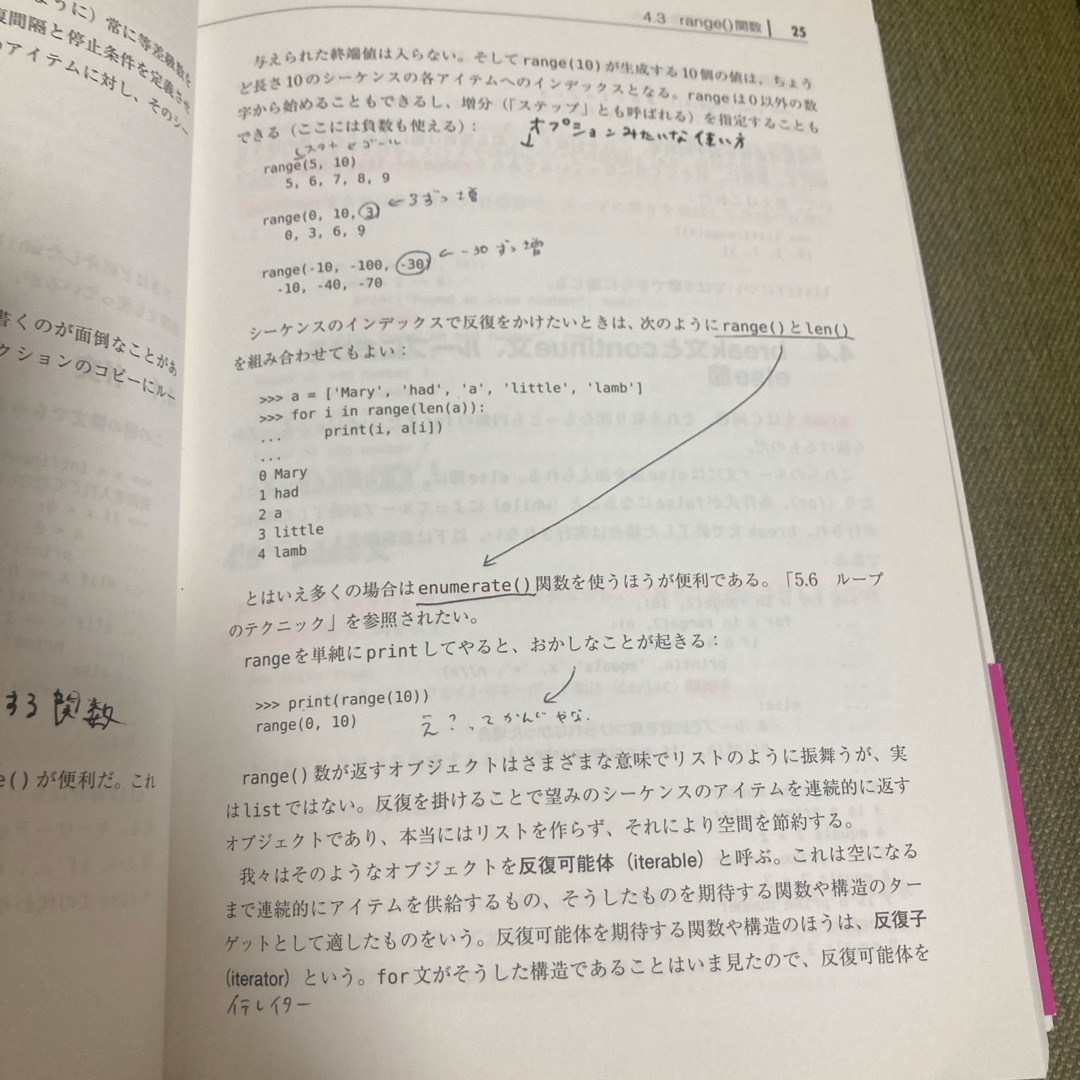 4.3 range()関数 25
与えられた終端値は入らない。そしてrange(10)が生成する10個の値は、ちょう
ど長さ10のシーケンスの各アイテムへのインデックスとなる。rangeは0以外の数
字から始めることもできるし、増分（「ステップ」とも呼ばれる）を指定することも
できる（ここには負数も使える）：
オプションみたいな使い方
range(5, 10)
5, 6, 7, 8, 9
range(0, 10, 3) ←3ずつ増
0, 3, 6, 9
range(-10, -100, -30) ←-30ずつ増
-10, -40, -70
シーケンスのインデックスで反復をかけたいときは、次のようにrange()とlen()
を組み合わせてもよい：
>>> a = ['Mary', 'had', 'a', 'little', 'lamb']
>>> for i in range(len(a)):
... print(i, a[i])
...
0 Mary
1 had
2 a
3 little
4 lamb
とはいえ多くの場合はenumerate()関数を使うほうが便利である。「5.6 ループ
のテクニック」を参照されたい。
rangeを単純にprintしてやると、おかしなことが起きる：
>>> print(range(10))
range(0, 10)
え？ってかんじやな.
range()数が返すオブジェクトはさまざまな意味でリストのように振舞うが、実
はlistではない。反復を掛けることで望みのシーケンスのアイテムを連続的に返す
オブジェクトであり、本当にはリストを作らず、それにより空間を節約する。
我々はそのようなオブジェクトを反復可能体（iterable）と呼ぶ。これは空になる
まで連続的にアイテムを供給するもの、そうしたものを期待する関数や構造のター
ゲットとして適したものをいう。反復可能体を期待する関数や構造のほうは、反復子
（iterator）という。for文がそうした構造であることはいま見たので、反復可能体を
イテレイター
ように）常に等差級数を
復間隔と停止条件を定義させ
アイテムに対し、そのシー
書くのが面倒なことがあ
クションのコピーにルー
する関数
e()が便利だ。これ